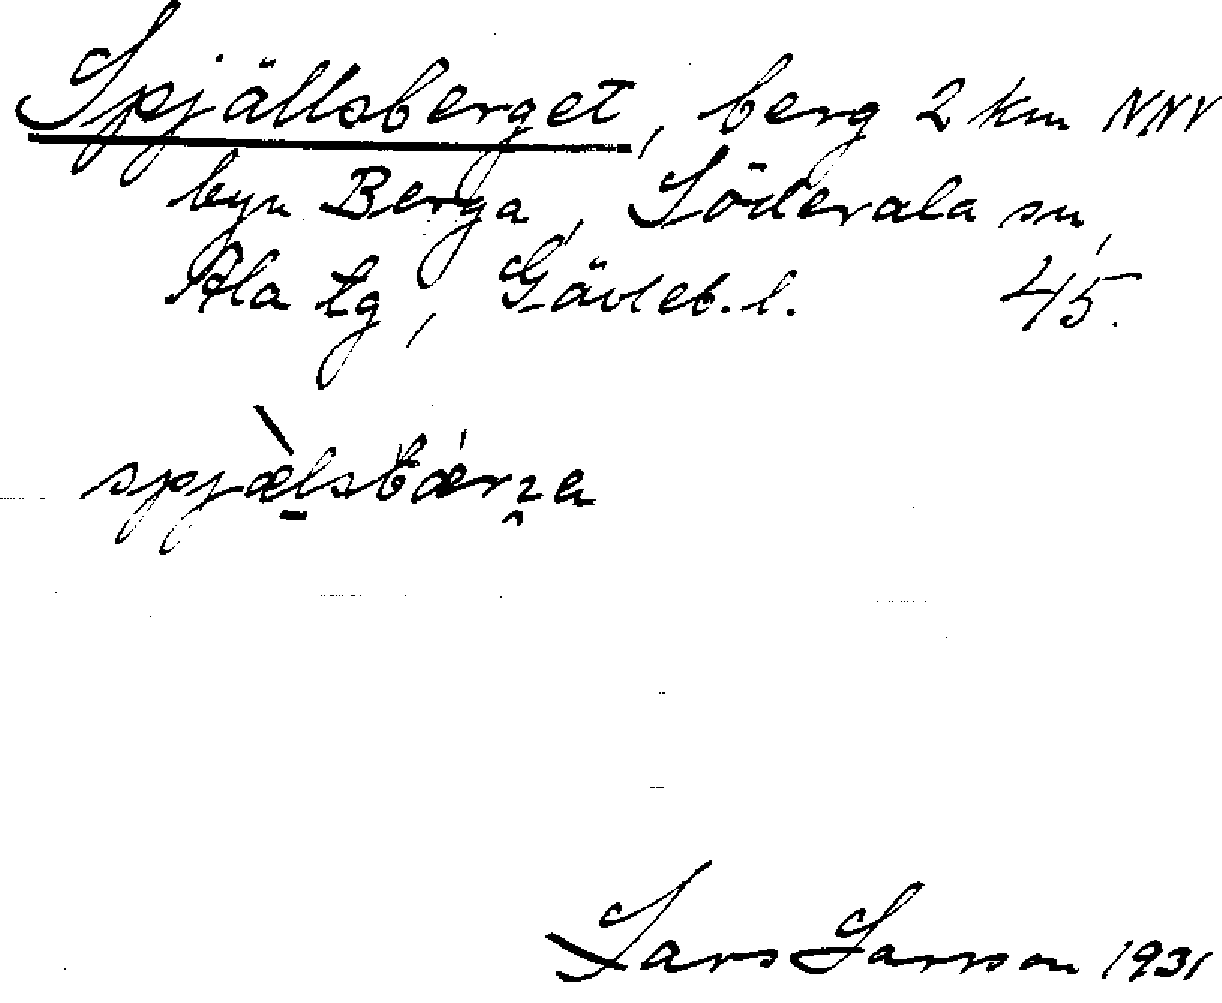 Spjällsberget, berg 2 km NNV
byn Berga, Söderala sn,
Ala tg, Gävleb. l. 45.
Lars Larsson 1931